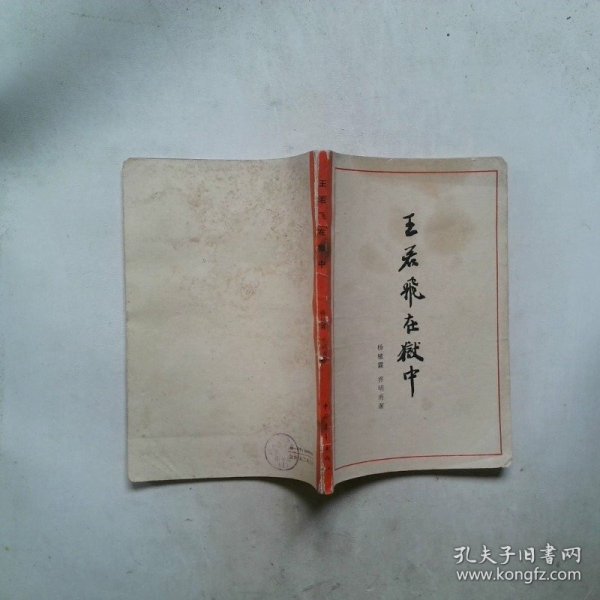 王若飛在獄中
杨植霖 乔明甫著
王若飞在狱中
孔夫子旧书网
www.kongfz.com